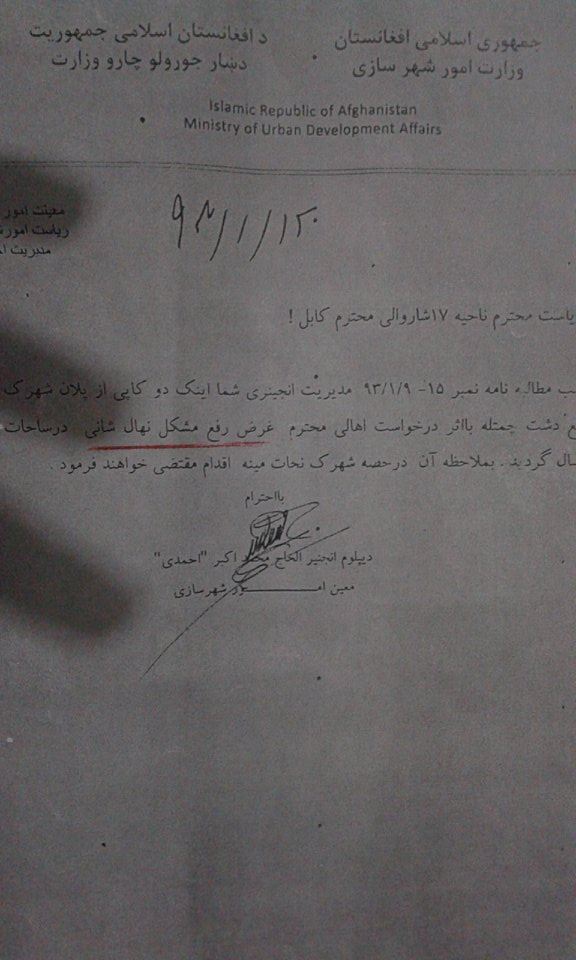 د افغانستان اسلامی جمهوریت
دښار جوړولو چارو وزارت
جمهوری اسلامی افغانستان
وزارت امور شهر سازی
Islamic Republic of Afghanistan
Ministry of Urban Development Affairs
معینت امور
ریاست امور
مدیریت
۹۳/۱/۱۲
ریاست محترم ناحیه ۱۷شاروالی محترم کابل !
مطالبه نامه نمبر ۱۵- ۹۳/۱/۹ مدیریت انجینری شما اینک دو کاپی از پلان شهرک
دشت چمتله بااثر درخواست اهالی محترم غرض رفع مشکل نهال شانی درساحات
گردید . بملاحظه آن درحصه شهرک نجات مینه اقدام مقتضی خواهند فرمود .
بااحترام
دیپلوم انجنیر الحاج محمد اکبر "احمدی"
معین امـــــــــور شهرسازی